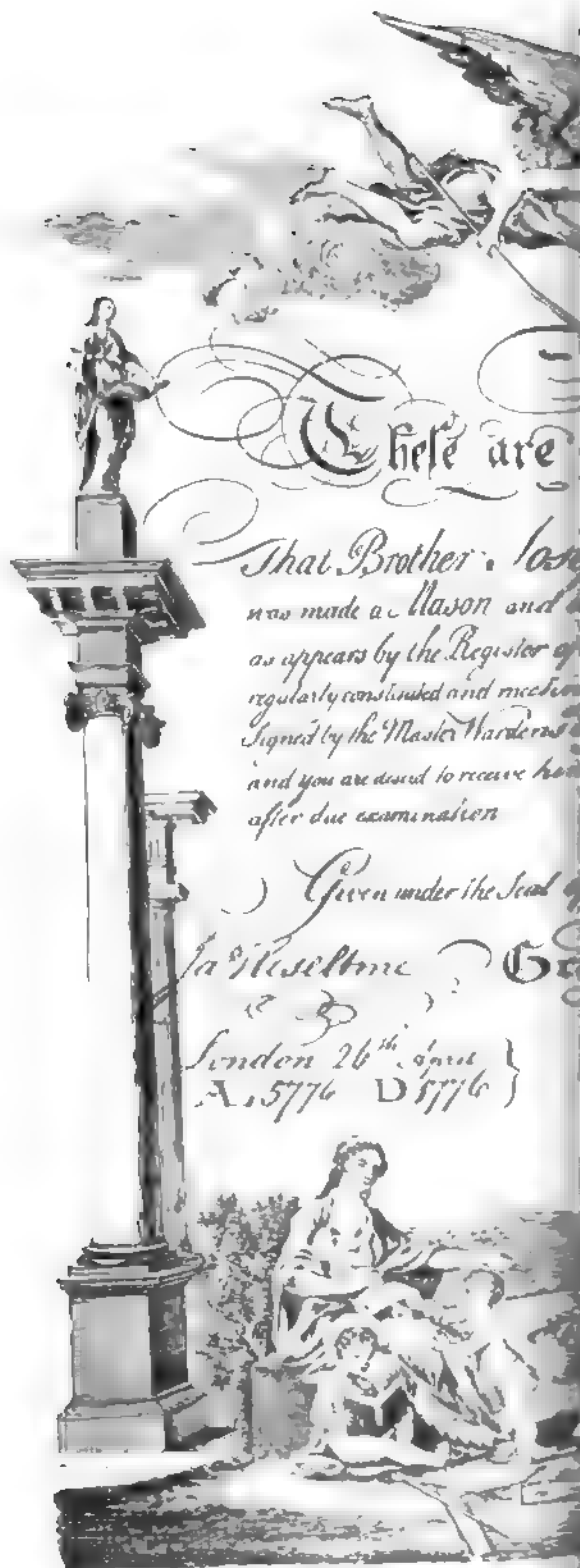 These are
That Brother Jos
was made a Mason and
as appears by the Register of
regularly constituted and meetin
Signed by the Master Wardens
and you are desired to receive
after due examination
Given under the Seal of
Ja Heseltine Gr
London 26th April
A. 5776 D 1776